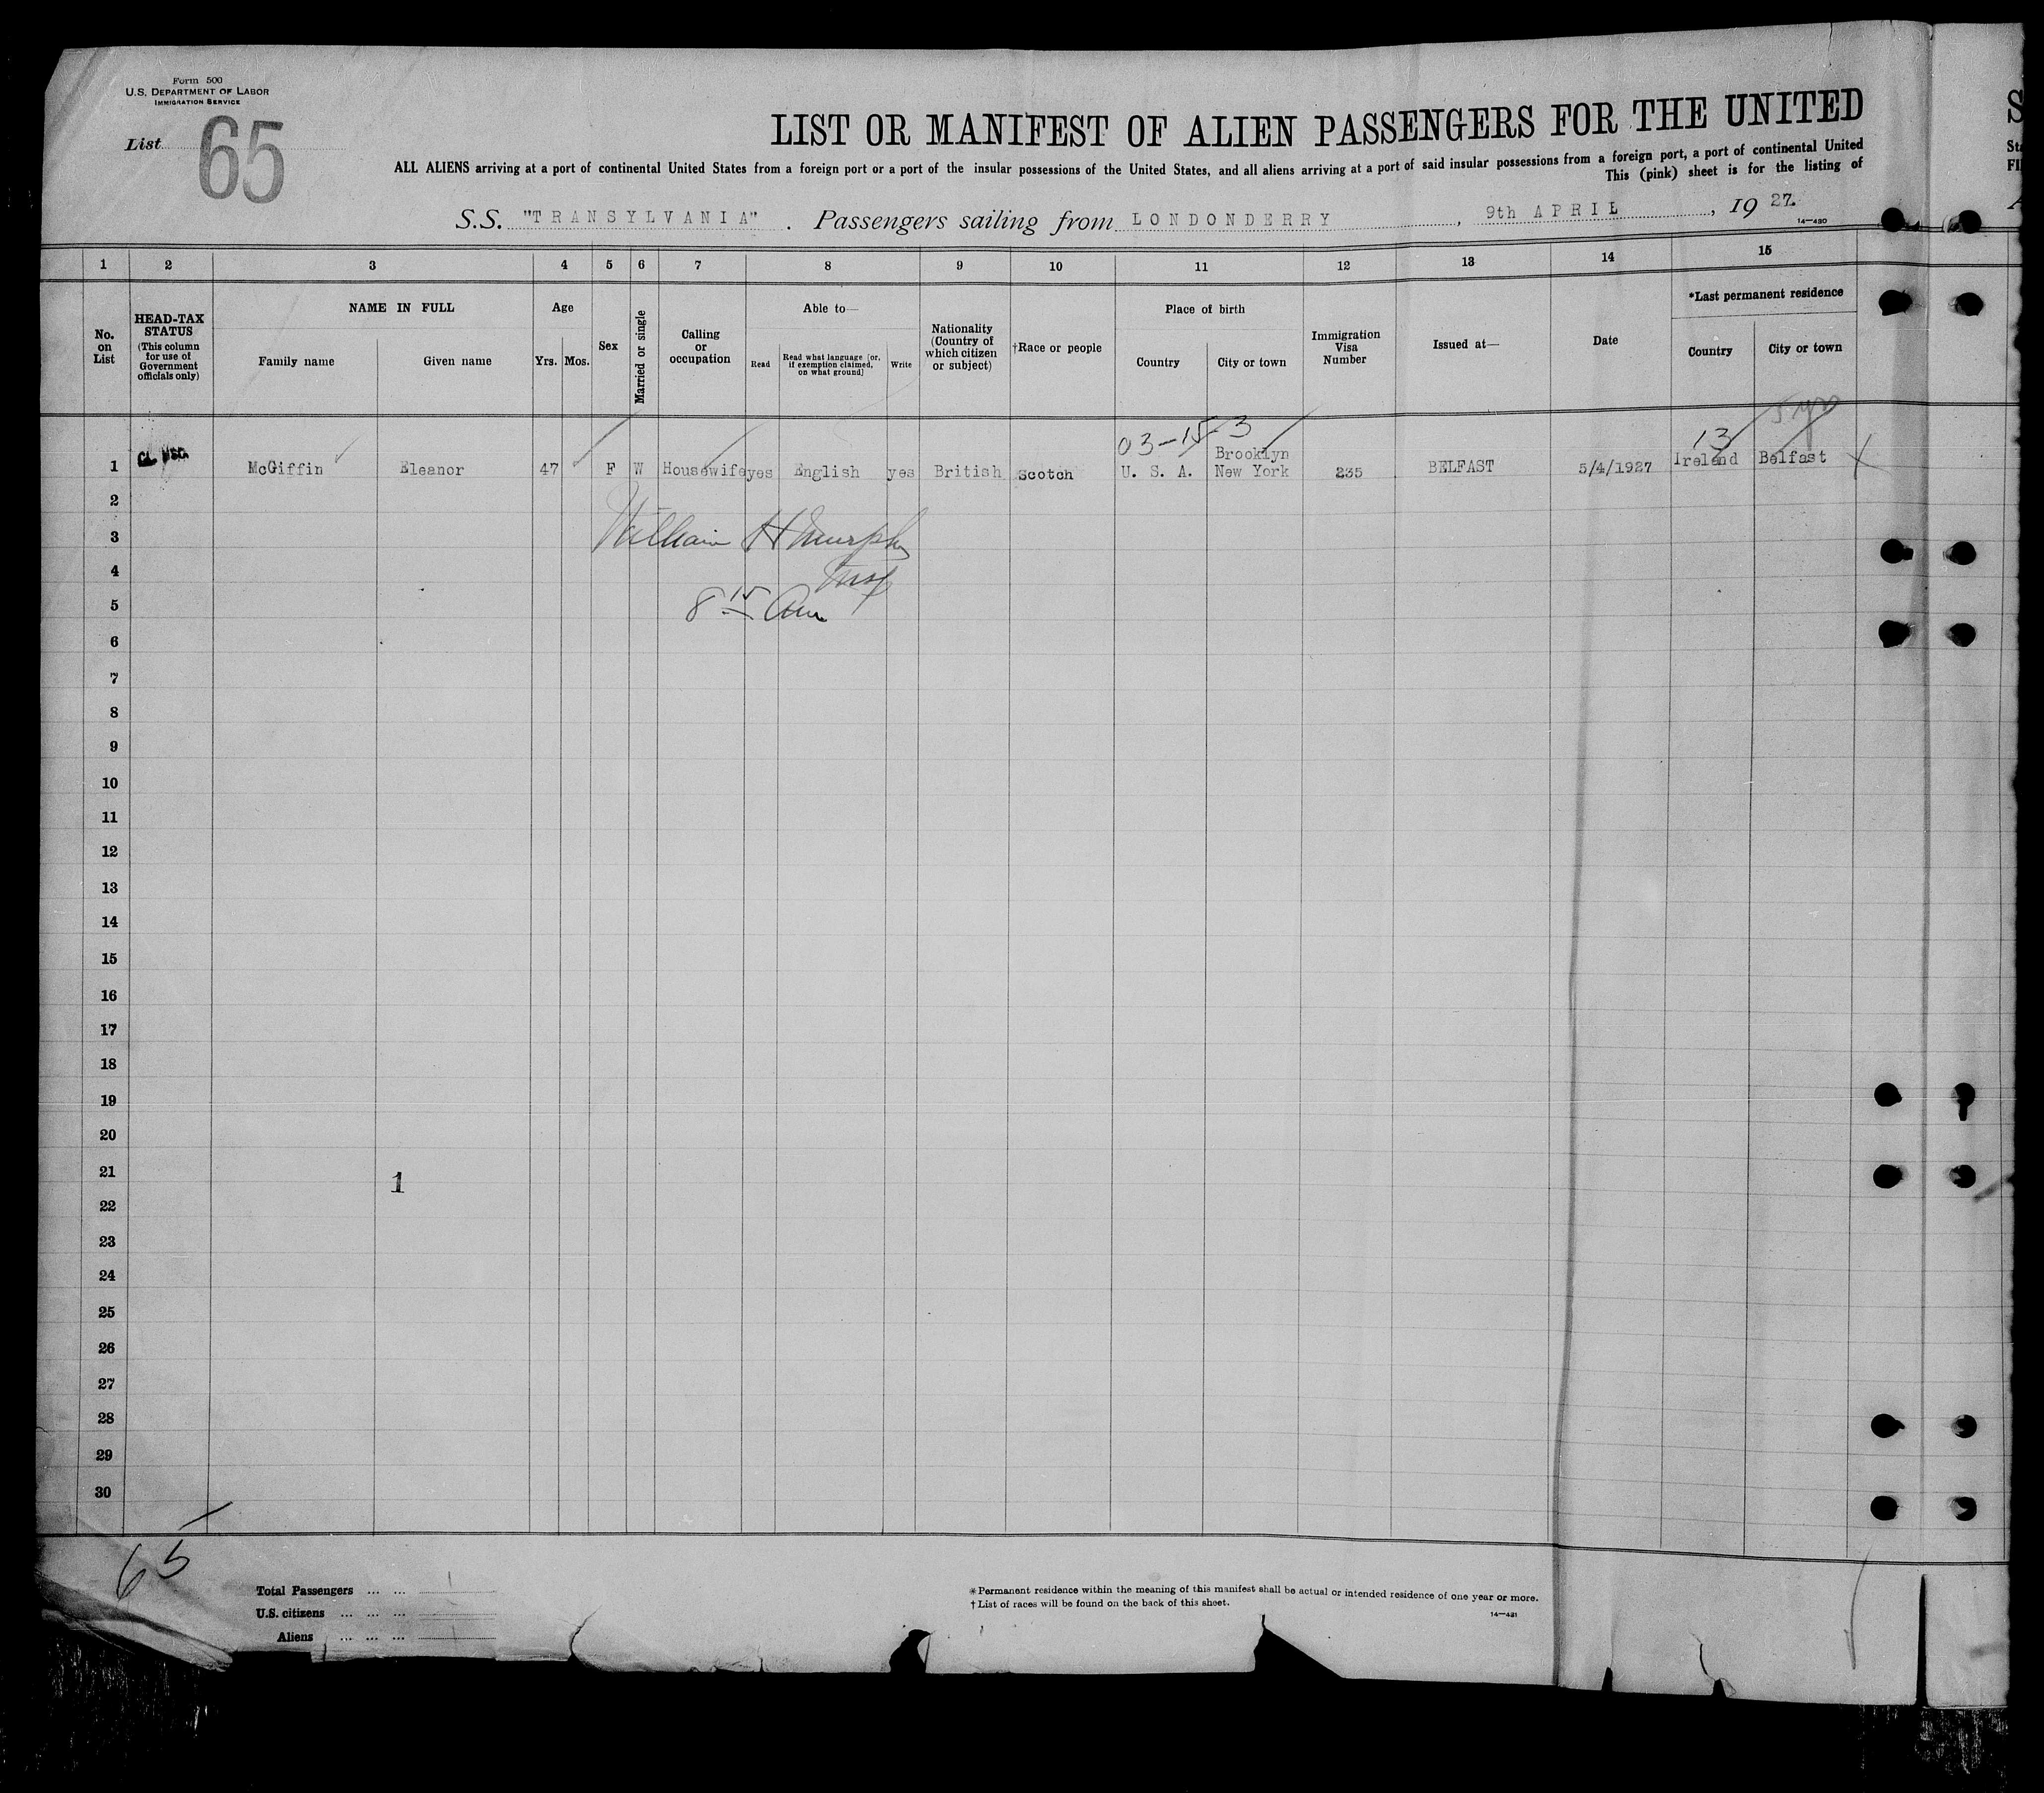 Form 500
U.S. DEPARTMENT OF LABOR
IMMIGRATION SERVICE
List 65
LIST OR MANIFEST OF ALIEN PASSENGERS FOR THE UNITED
ALL ALIENS arriving at a port of continental United States from a foreign port or a port of the insular possessions of the United States, and all aliens arriving at a port of said insular possessions from a foreign port, a port of continental United
This (pink) sheet is for the listing of
S.S. "TRANSYLVANIA". Passengers sailing from LONDONDERRY, 9th APRIL, 19 27.
14—430
1 2 3 4 5 6 7 8 9 10 11 12 13 14 15
No. on List
HEAD-TAX STATUS
(This column for use of Government officials only)
NAME IN FULL
Family name
Given name
Age
Yrs. Mos.
Sex
Married or single
Calling or occupation
Able to—
Read
Read what language [or, if exemption claimed, on what ground]
Write
Nationality (Country of which citizen or subject)
†Race or people
Place of birth
Country
City or town
Immigration Visa Number
Issued at—
Date
*Last permanent residence
Country
City or town
5 yrs
03-15-3 13
1 McGiffin Eleanor 47 F W Housewife yes English yes British Scotch U. S. A. Brooklyn New York 235 BELFAST 5/4/1927 Ireland Belfast
2
William H Murphy
3
4
8 15 Am
5
6
7
8
9
10
11
12
13
14
15
16
17
18
19
20
21
1
22
23
24
25
26
27
28
29
30
65
Total Passengers ... ... 1
U.S. citizens ... ... ...
Aliens ... ... ...
*Permanent residence within the meaning of this manifest shall be actual or intended residence of one year or more.
†List of races will be found on the back of this sheet.
14—431